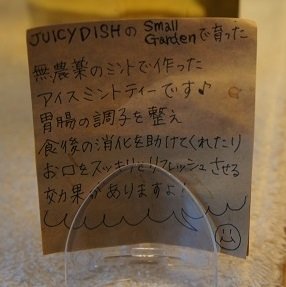 JUICY DISHの Small Gardenで育った
無農薬のミントで作った
アイスミントティーです♪
胃腸の調子を整え
食後の消化を助けてくれたり
お口をスッキリとリフレッシュさせる
効果がありますよ!